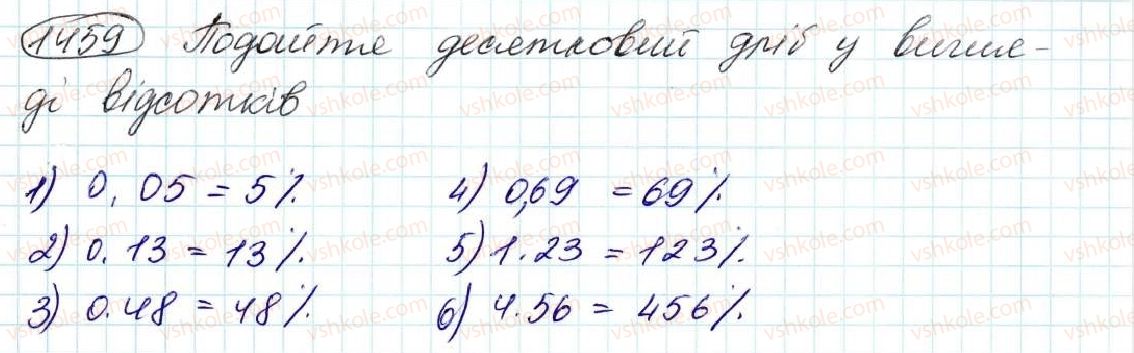 1459 Подайте десятковий дріб у вигля-
ді відсотків
1) 0,05 = 5%. 4) 0,69 = 69%.
2) 0.13 = 13%. 5) 1.23 = 123%.
3) 0.48 = 48%. 6) 4.56 = 456%.
vshkole.com